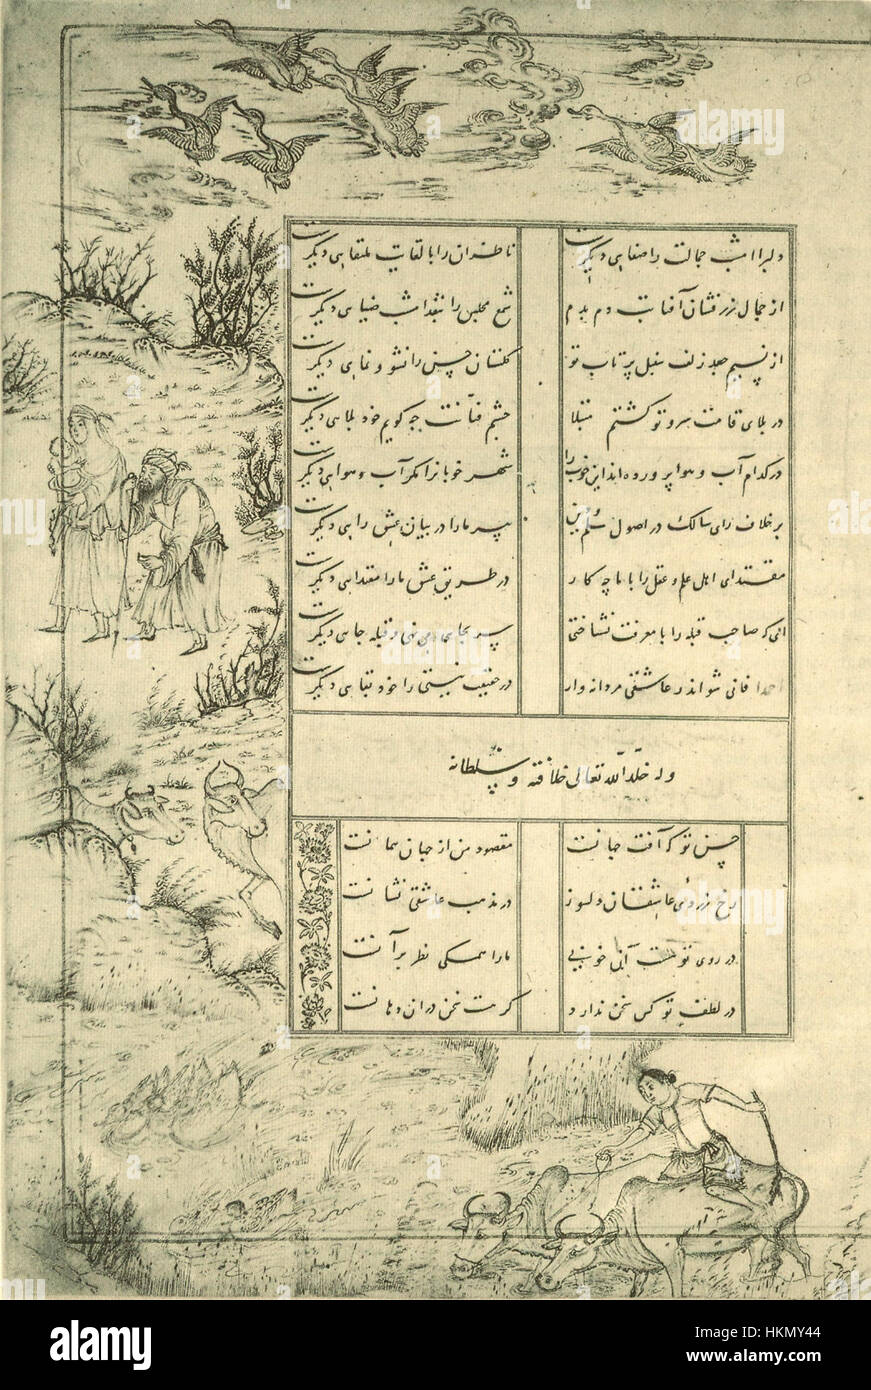 دلبرا امشب جمالت را صفایی دیگرست ناظران را با لقایت ملتقایی دیگرست
از جمال زرفشان آفتابت دم بدم شمع مجلس را بنقد امشب ضیایی دیگرست
از نسیم جعد زلف سنبل پرتاب تو گلستان حسن را نشو و نمایی دیگرست
در بلای قامت سرو تو گشتم مبتلا چشم فتانت چه گویم خود بلایی دیگرست
در کدام آب و هوا پرورده اند این خوب را شهر خوبانرا مگر آب و هوایی دیگرست
بر خلاف رای سالک در اصول علم دین پیر ما را در بیان عشق رایی دیگرست
مقتدای اهل علم و عقل را با ما چه کار در طریق عشق ما را مقتدایی دیگرست
ای که صاحب قبله را با معرفت نشناختی سر بجایی می نهی و قبله جایی دیگرست
احمدا فانی شو اندر عاشقی مردانه وار در حقیقت نیستی را خود بقایی دیگرست
وله خلّد اللّه تعالی خلافته و سلطانه
حسن تو که آفت جهانست مقصود من از جهان همانست
رخ زردی عاشقان دلسوز در مذهب عاشقی نشانست
در روی تو هست آنی خوبی ما را همگی نظر بر آنست
در لطف تو کس سخن ندارد گر هست سخن در آن دهانست
alamy
Image ID: HKMY44
www.alamy.com